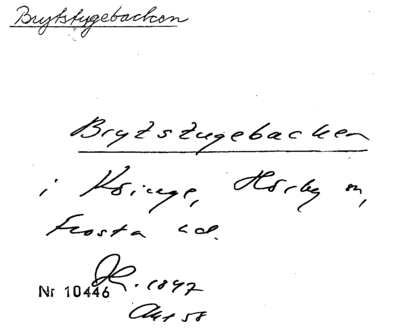 Brytstugebacken
Brytstugebacken
i Kringe, Hörby sn,
Frosta hd.
Nr 10446 1847
Akt 58